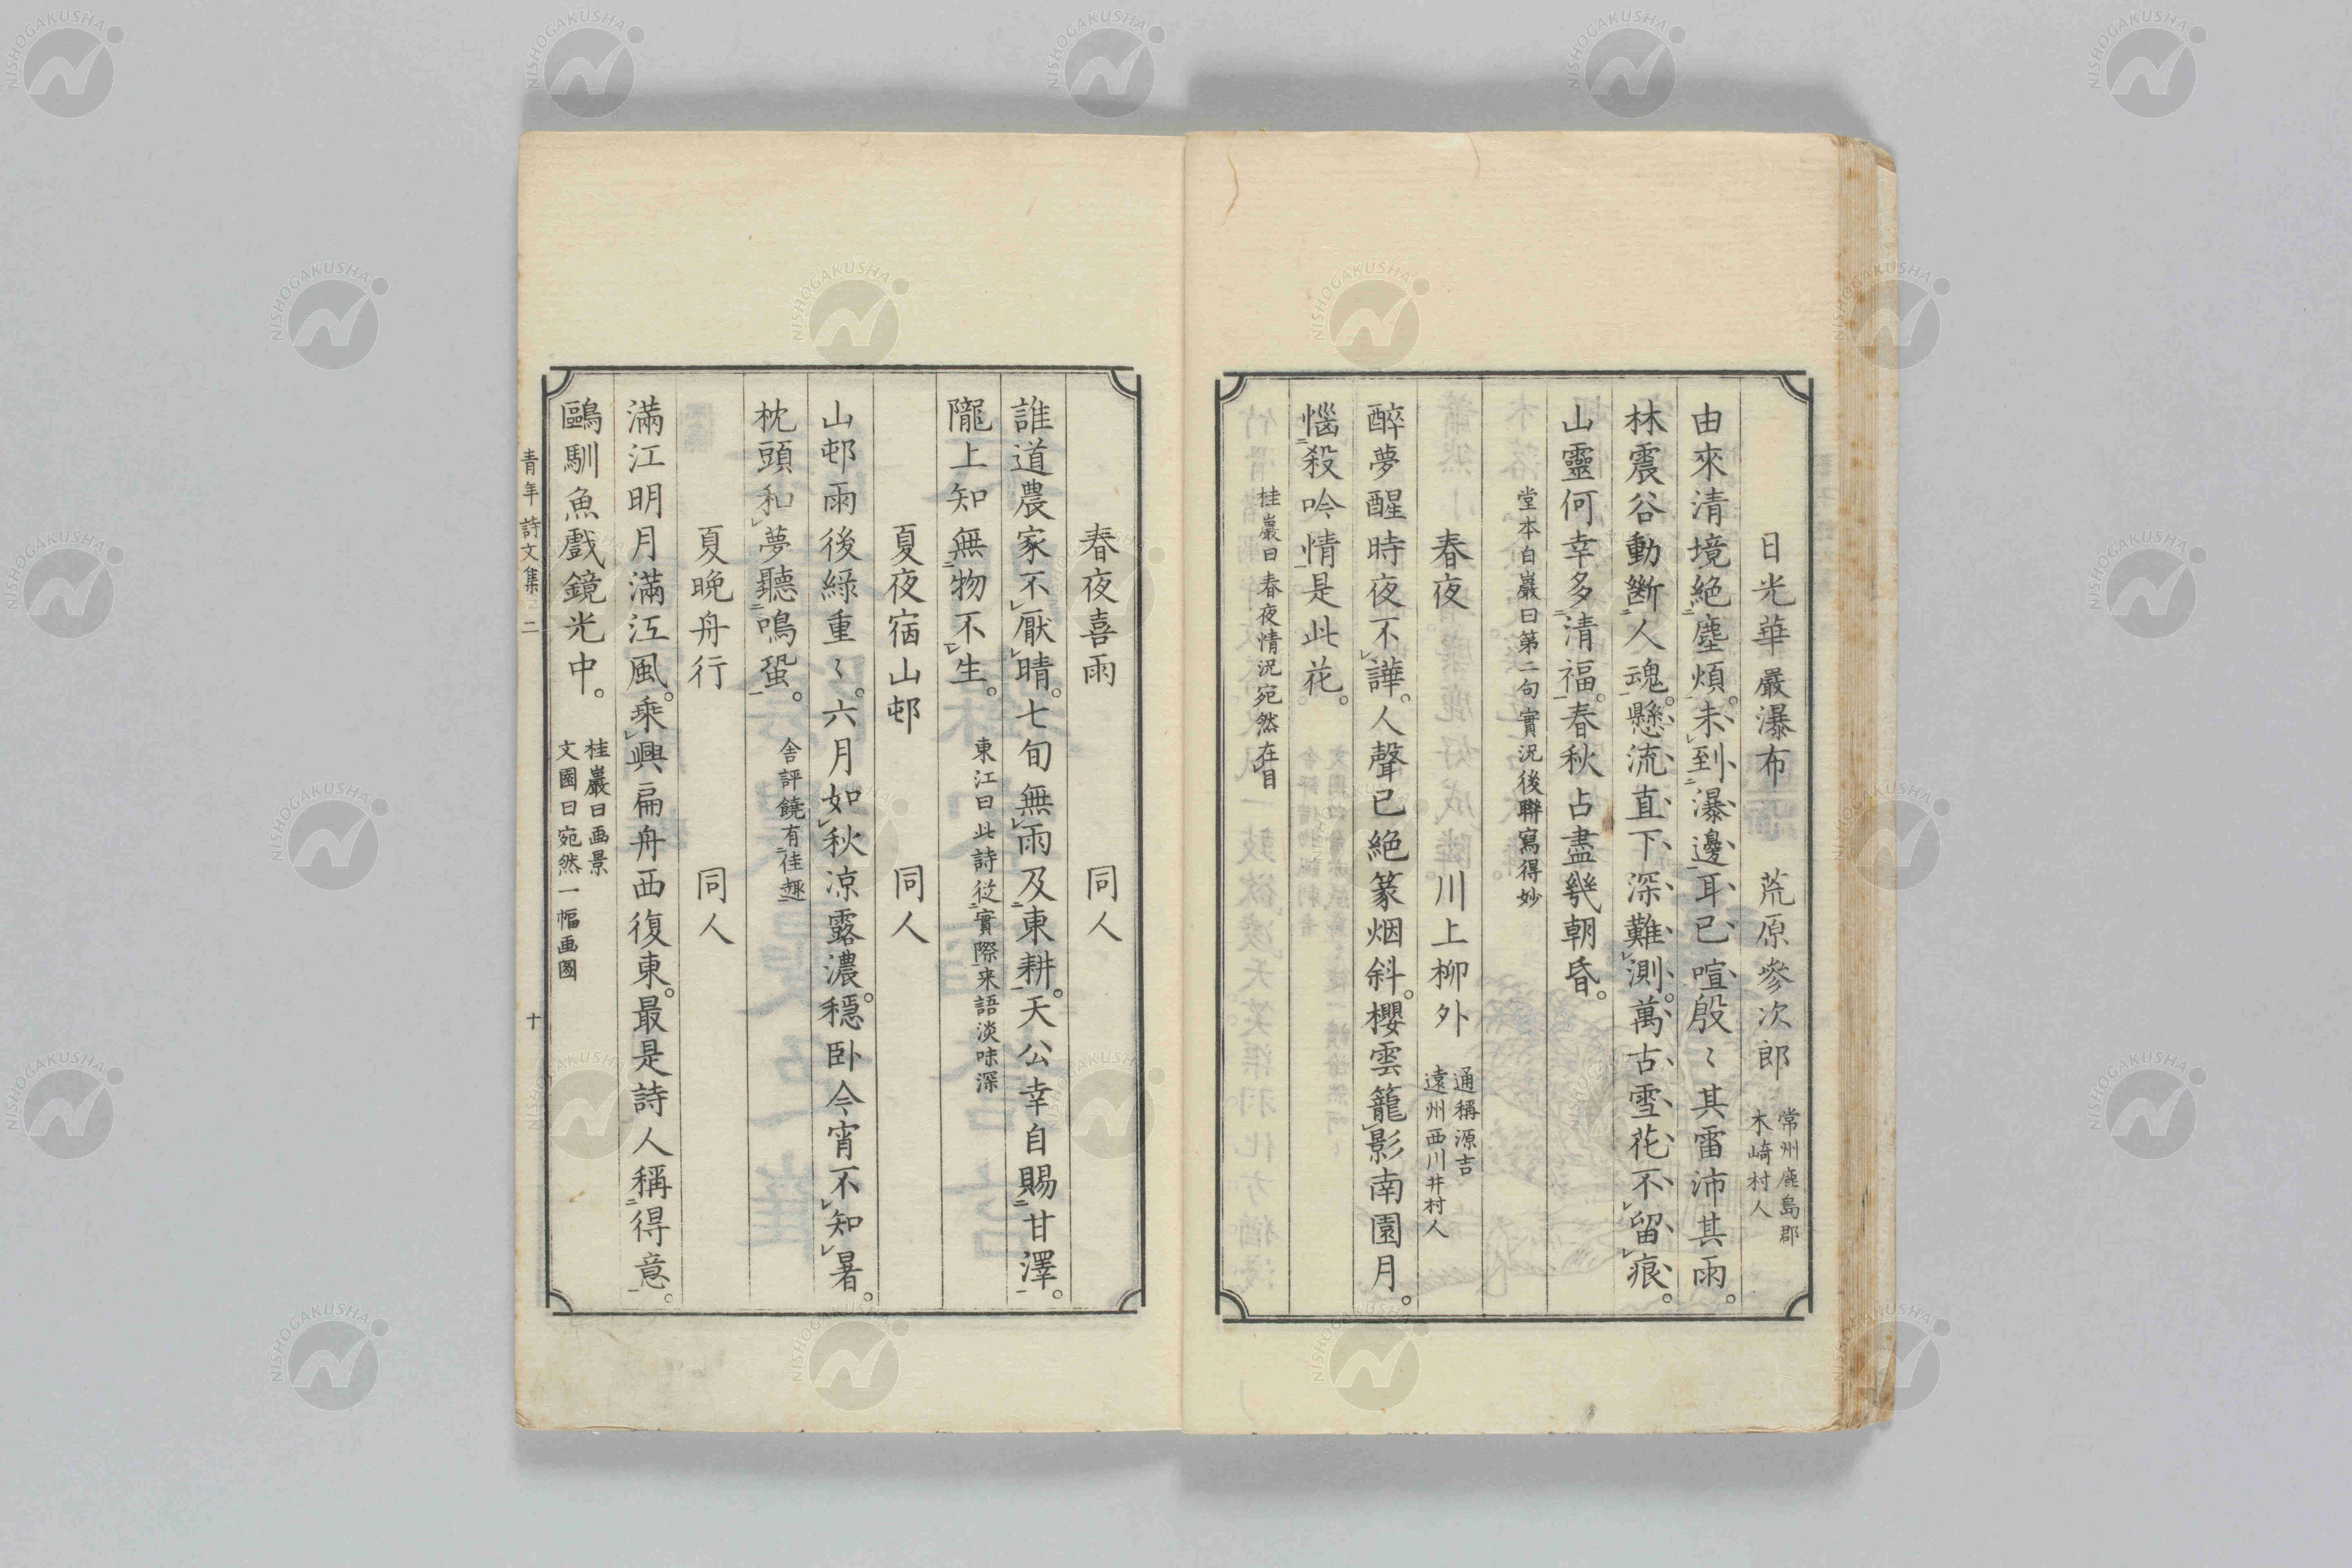 日光華嚴瀑布　荒原參次郎　常州鹿島郡
木崎村人
由來清境絶塵煩。未到瀑邊耳已喧殷〻其雷沛其雨。
林震谷動斷人魂。懸流直下深難測。萬古雪花不留痕。
山靈何幸多清福。春秋占盡幾朝昏。
堂本白巖曰第二句實況後聯寫得妙
春夜　川上柳外　通稱源吉
遠州西川井村人
醉夢醒時夜不譁。人聲已絶篆烟斜。櫻雲籠影南園月。
惱殺吟情是此花。
桂巖曰春夜情況宛然在目
春夜喜雨　同人
誰道農家不厭晴。七旬無雨及東耕。天公幸自賜甘澤。
隴上知無物不生。東江曰此詩從實際来語淡味深
夏夜宿山邨　同人
山邨雨後緑重〻。六月如秋凉露濃。穩卧今宵不知暑。
枕頭和夢聽鳴蛩。舎評饒有佳趣
夏晩舟行　同人
滿江明月滿江風。乘興扁舟西復東。最是詩人稱得意。
鷗馴魚戲鏡光中。桂巖曰画景
文園曰宛然一幅画圖
青年詩文集　二　十
NISHOGAKUSHA